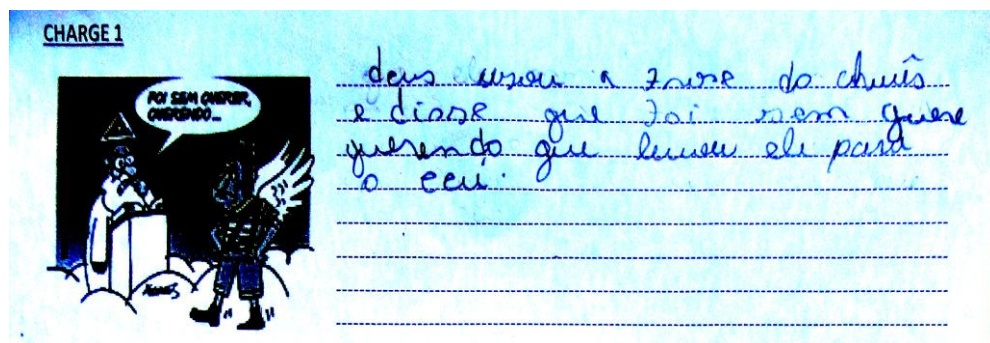 CHARGE 1
FOI SEM QUERER,
QUERENDO...
deus usou a frase do chavês
e disse que foi sem quere
querendo que levou ele para
o ceú.